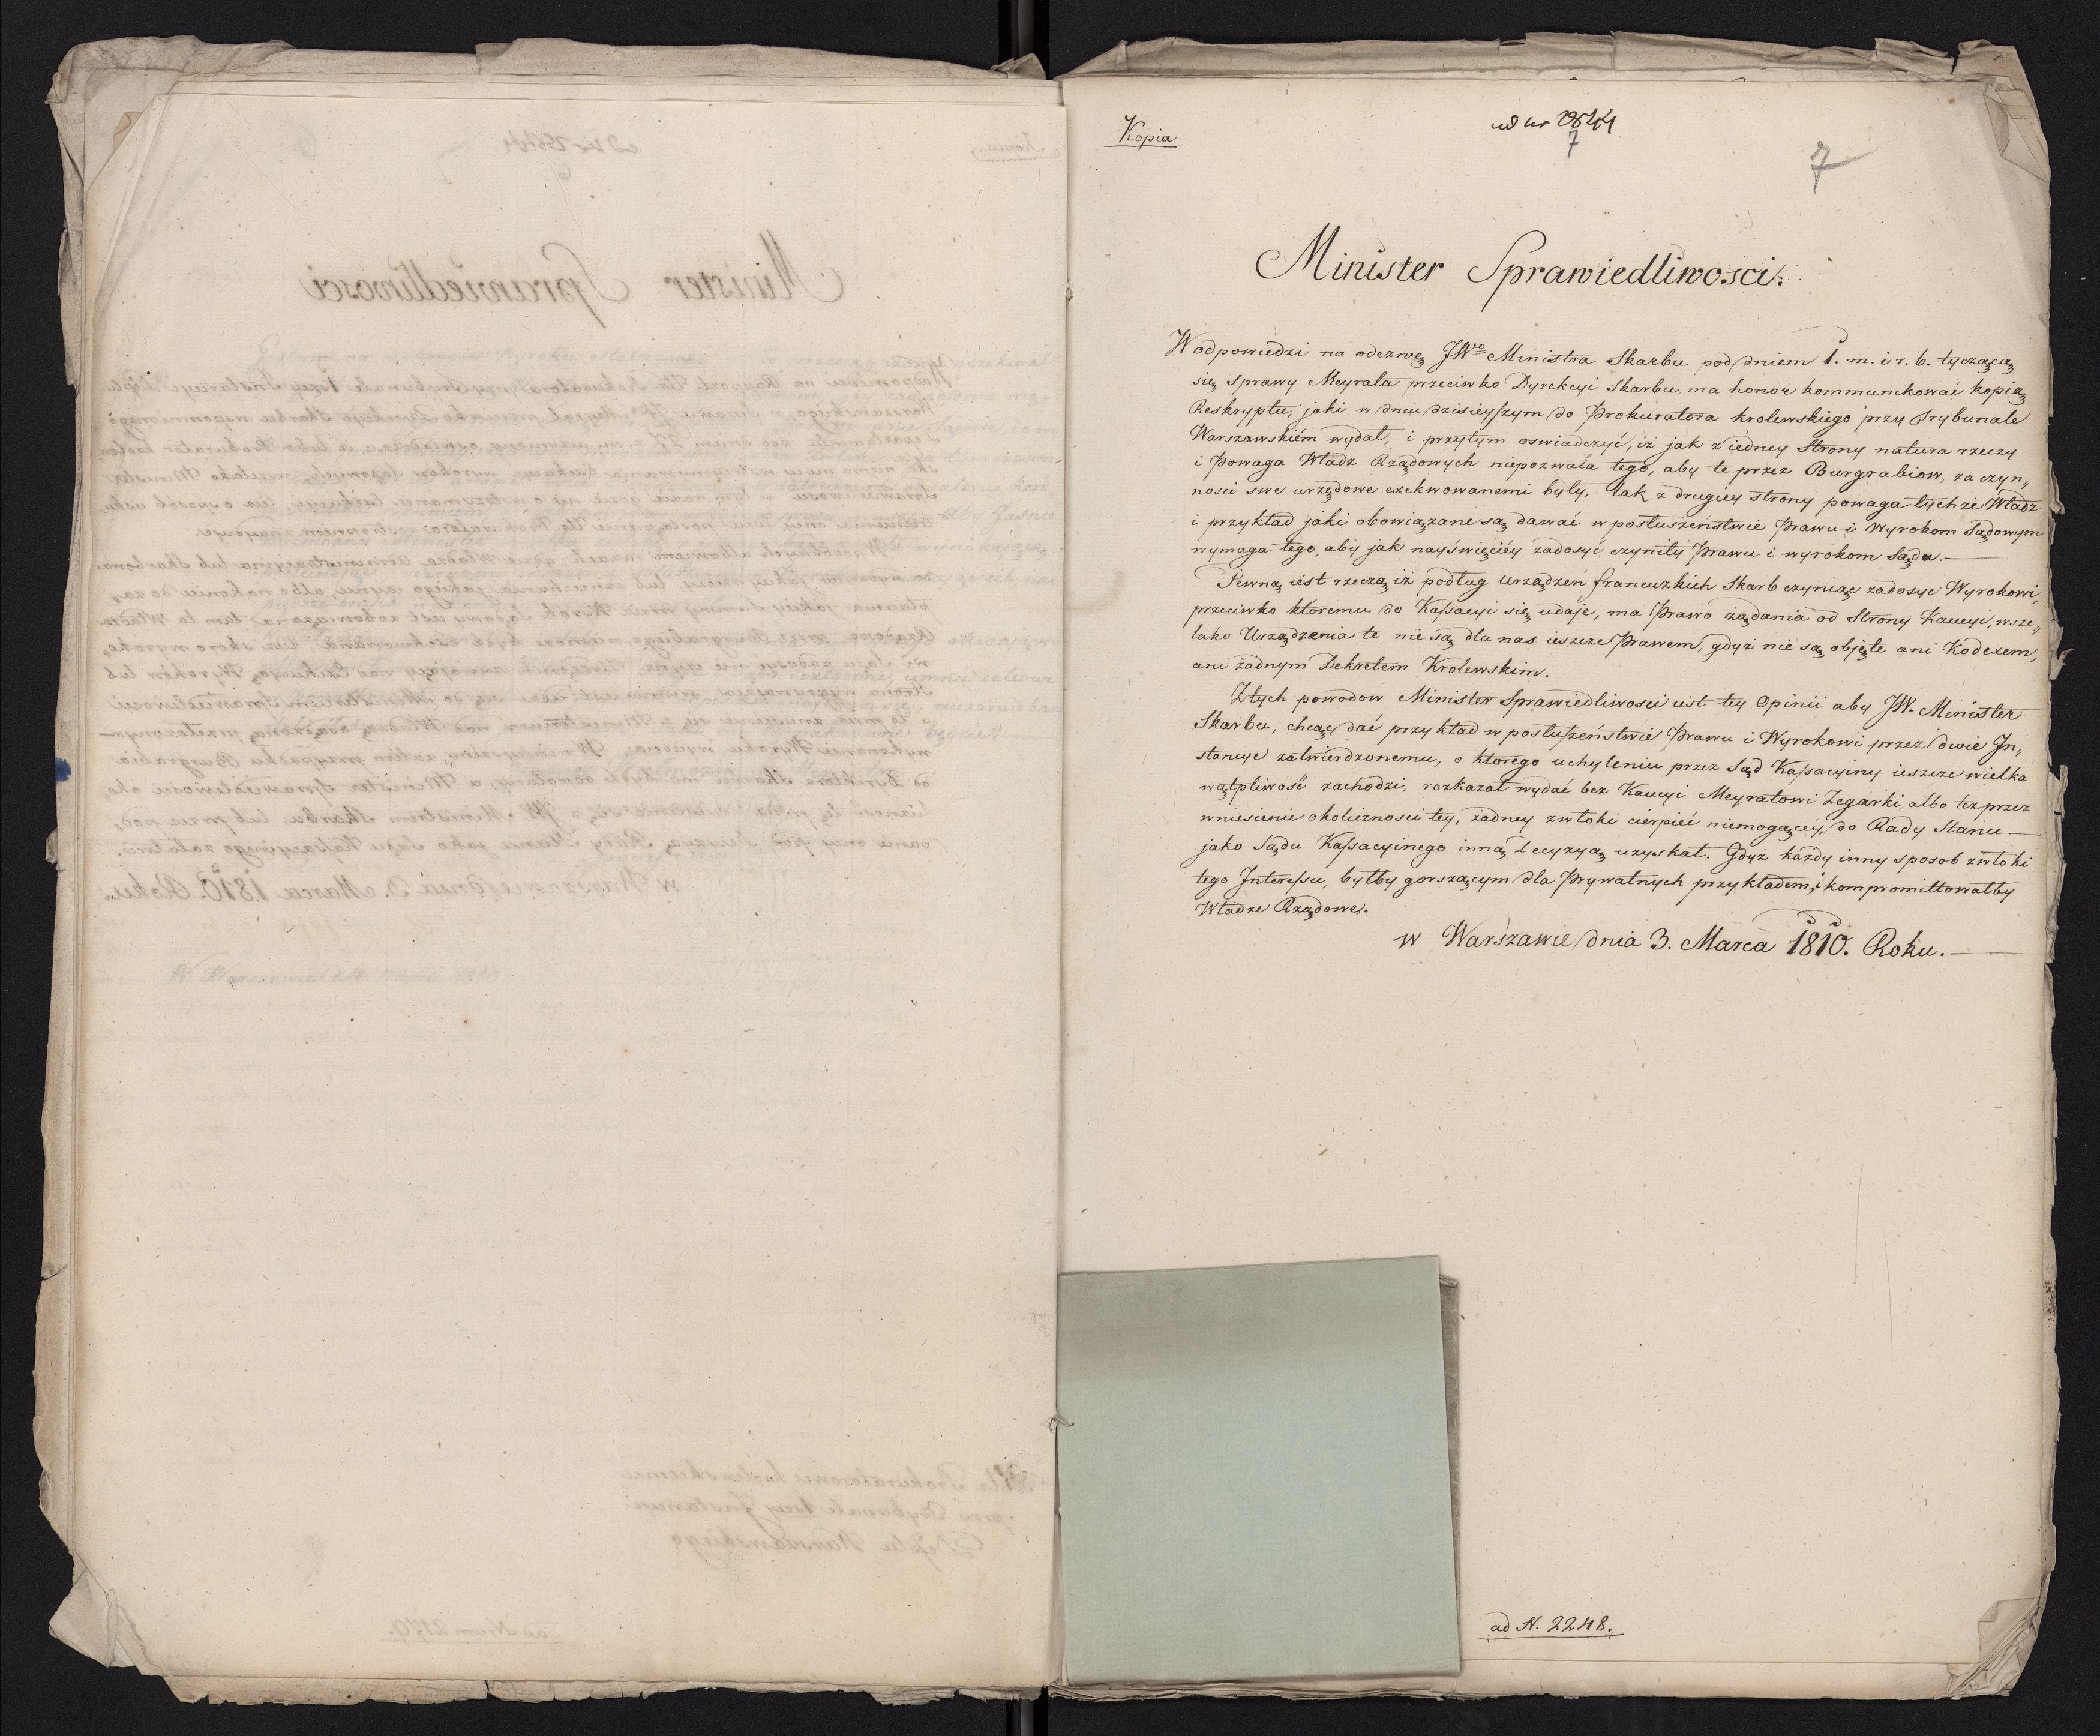 Kopia
ad nr
7
7
Minister Sprawiedliwosci.
W odpowiedzi na odezwę JWo Ministra Skarbu pod dniem 1. m. i r. b. tyczącą
się Sprawy Meyrata przeciwko Dyrekcyi Skarbu, ma honor kommunikować kopią
Reskryptu, jaki w dniu dzisieyszym do Prokuratora krolewskiego przy Trybunale
Warszawskiém wydał, i przytym oswiadczyć, iż jak z iedney Strony natura rzeczy
i Powaga Władz Rządowych niepozwala tego, aby te przez Burgrabiow, za czyn„
nosci swe urzędowe exekwowanemi były, tak z drugiey strony powaga tychże Władz
i przykład jaki obowiązane są dawać w posłuszeństwie Prawu i Wyrokom Sądowym
wymaga tego, aby jak nayświęciéy zadosyć czyniły Prawu i wyrokom Sądu.—
Pewną iest rzeczą iż podług Urządzeń francuzkich Skarb czyniąc zadosyc Wyrokowi,
przeciwko ktoremu do Kassacyi się udaje, ma Prawo żądania od Strony Kaucyi, wsze„
lako Urządzenia te nie są dla nas ieszcze Prawem, gdyż nie są objęte ani Kodexem,
ani żadnym Dekretem Krolewskim.
Z tych powodow Minister Sprawiedliwosci iest tey Opinii aby JW. Minister
Skarbu, chcąc dać przykład w posłuszeństwie Prawu i Wyrokowi przez dwie In„
stancye zatwierdzonemu, o ktorego uchyleniu przez Sąd Kassacyiny ieszcze wielka
wątpliwość zachodzi, rozkazał wydać bez Kaucyi Meyratowi Zegarki albo też przez
wniesienie okoliznosci tey, żadney zwłoki cierpieć niemogącey, do Rady Stanu —
jako Sądu Kassacyinego inną Decyzyą uzyskał. Gdyż każdy inny sposob zwłoki
tego Interessu, byłby gorszącym dla Prywatnych przykładem, i kompromittowałby
Władze Rządowe.
w Warszawie dnia 3. Marca 1810. Roku.—
ad N. 2248.